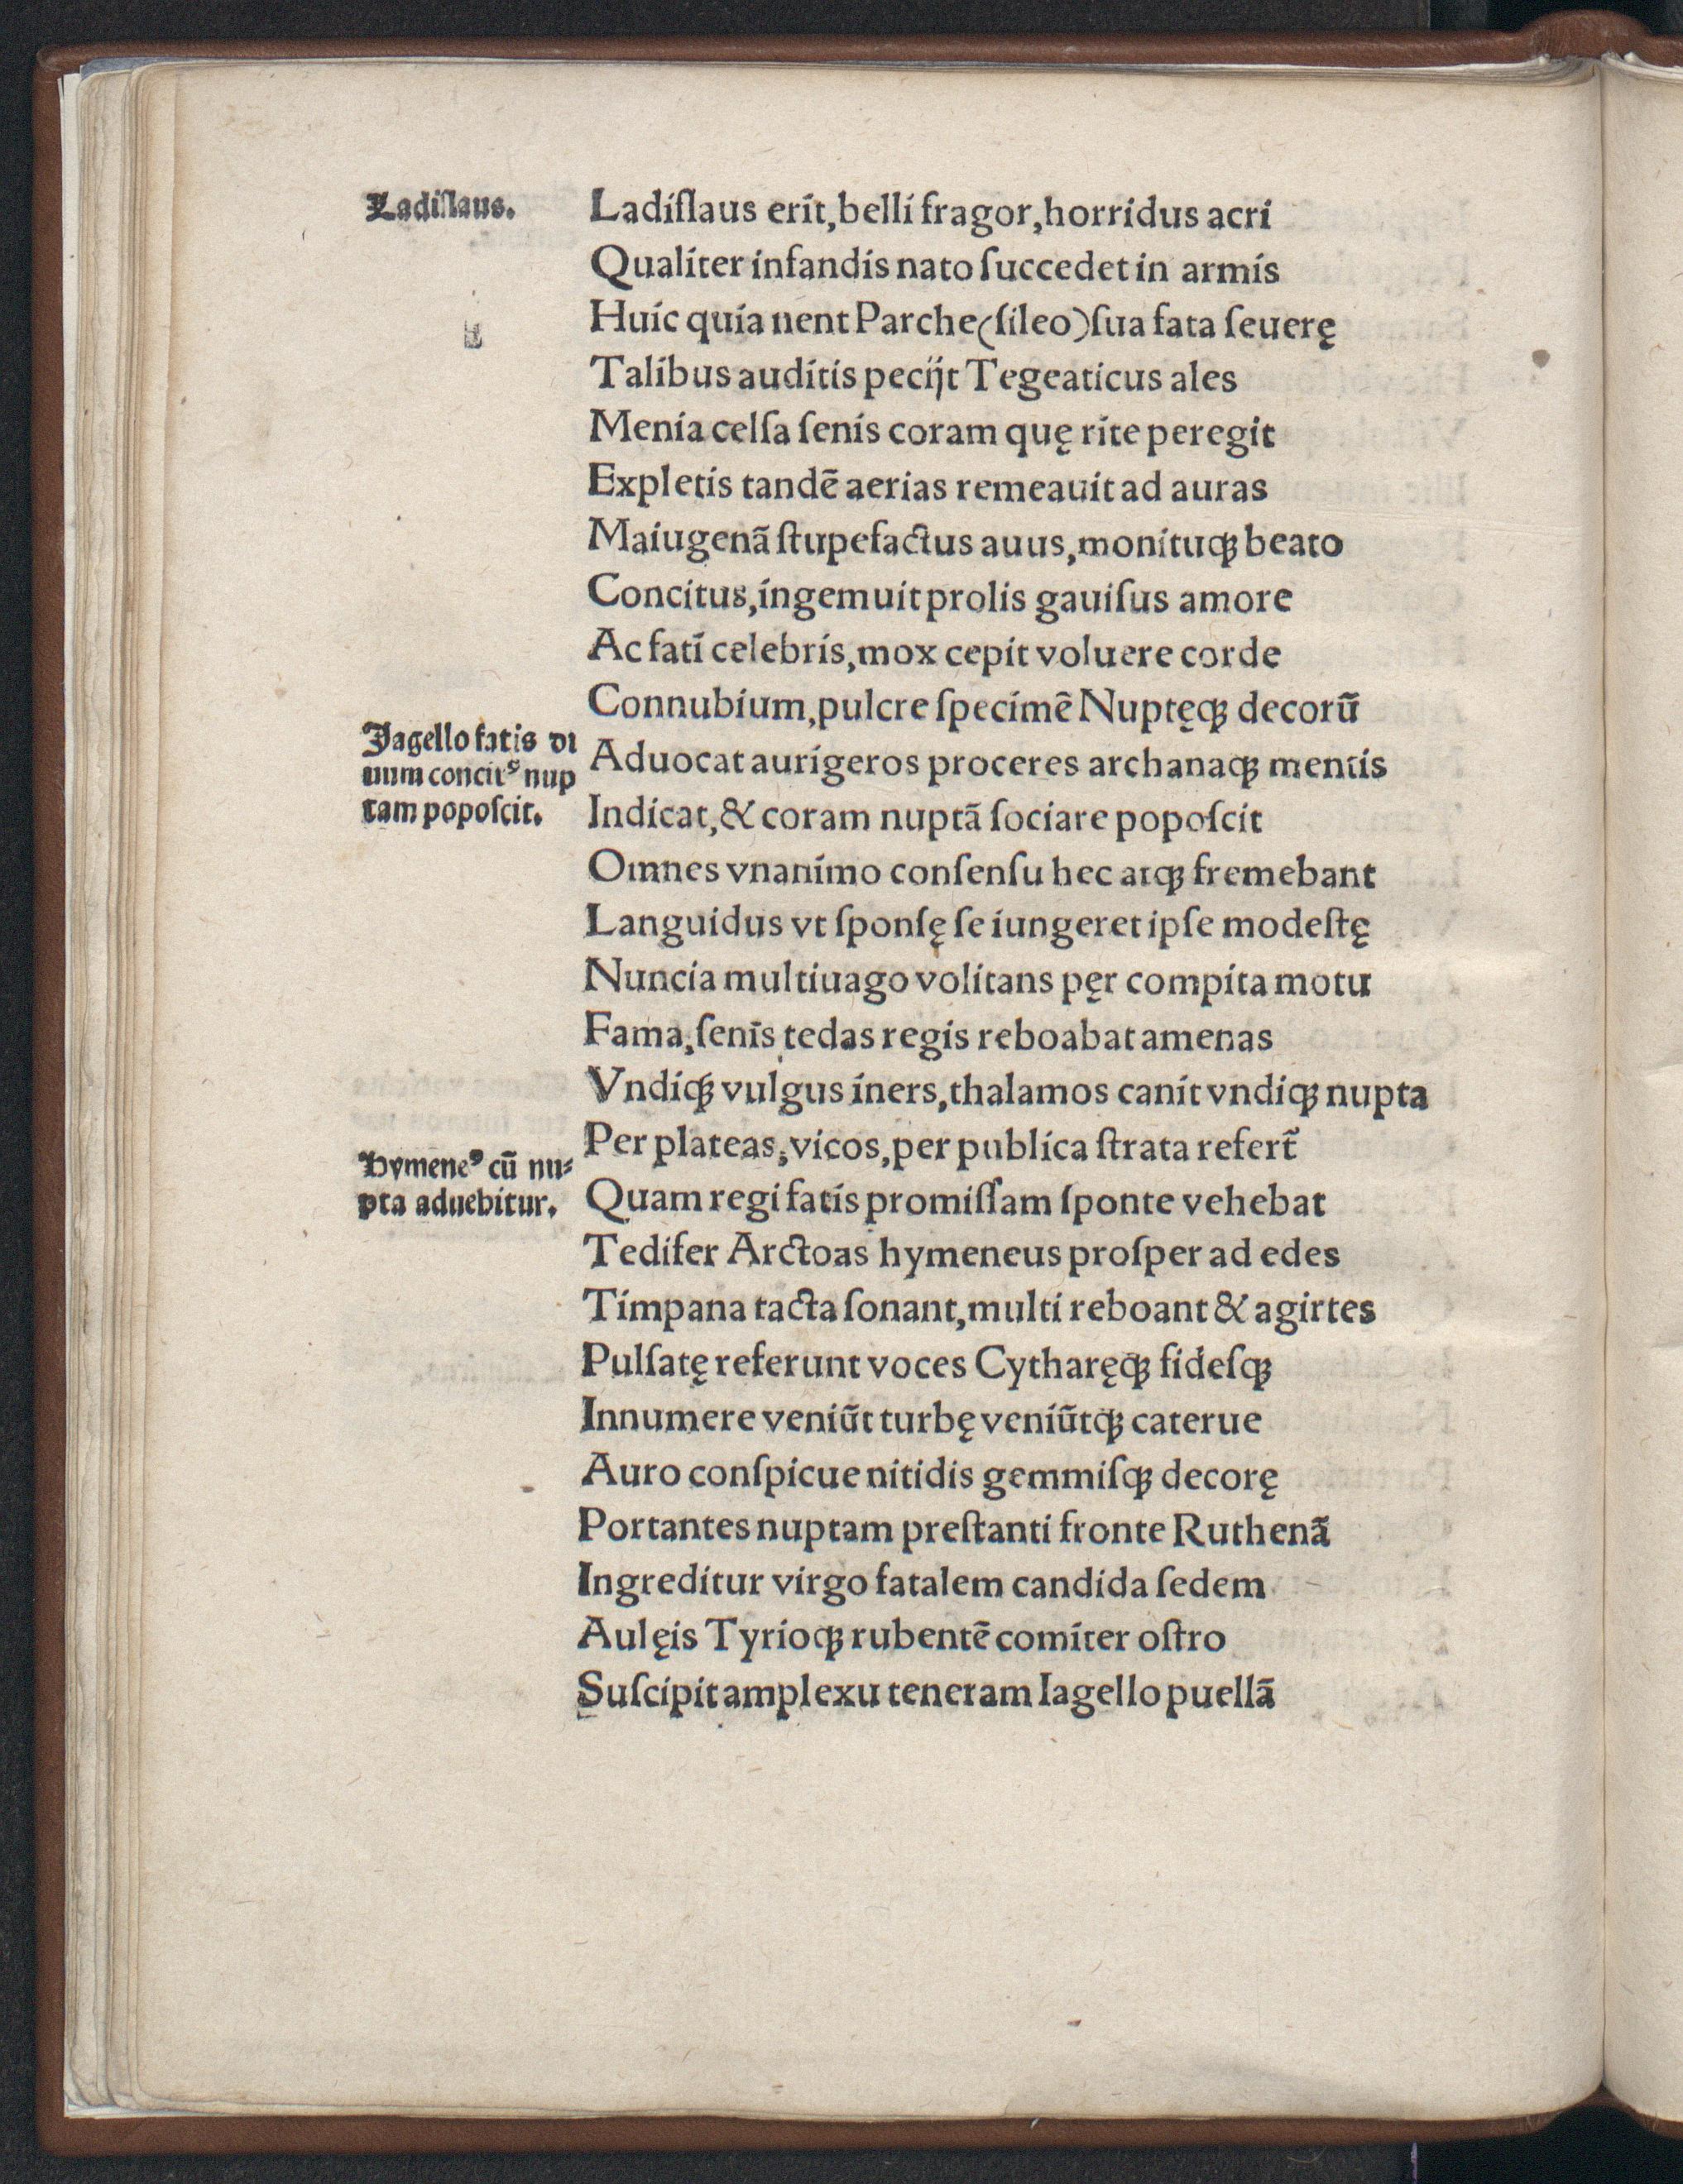 Ladiſlaus.
Ladiſlaus erit,belli fragor,horridus acri
Qualiter infandis nato ſuccedet in armis
Huic quia nent Parche(ſileo)ſua fata ſeuerę
Talibus auditis pecijt Tegeaticus ales
Menia celſa ſenis coram quę rite peregit
Expletis tandē aerias remeauit ad auras
Maiugenā ſtupefactus auus,monituqꝫ beato
Concitus,ingemuit prolis gauiſus amore
Ac fati celebris,mox cepit voluere corde
Connubium,pulcre ſpecimē Nuptęqꝫ decorū
Jagello fatis di
uum concitꝰ nup
tam popoſcit.
Aduocat aurigeros proceres archanaqꝫ mentis
Indicat,& coram nuptā ſociare popoſcit
Omnes vnanimo conſenſu hec atqꝫ fremebant
Languidus vt ſponſę ſe iungeret ipſe modeſtę
Nuncia multiuago volitans pęr compita motu
Fama,ſenis tedas regis reboabat amenas
Vndiqꝫ vulgus iners,thalamos canit vndiqꝫ nupta
Per plateas,vicos,per publica ſtrata refert̃
Hymeneꝰ cū nu⸗
pta aduebitur.
Quam regi fatis promiſſam ſponte vehebat
Tedifer Arctoas hymeneus proſper ad edes
Timpana tacta ſonant,multi reboant & agirtes
Pulſatę referunt voces Cytharęqꝫ fideſqꝫ
Innumere veniūt turbę veniūtqꝫ caterue
Auro conſpicue nitidis gemmiſqꝫ decorę
Portantes nuptam preſtanti fronte Ruthenā
Ingreditur virgo fatalem candida ſedem
Aulęis Tyrioqꝫ rubentē comiter oſtro
Suſcipit amplexu teneram Iagello puellā